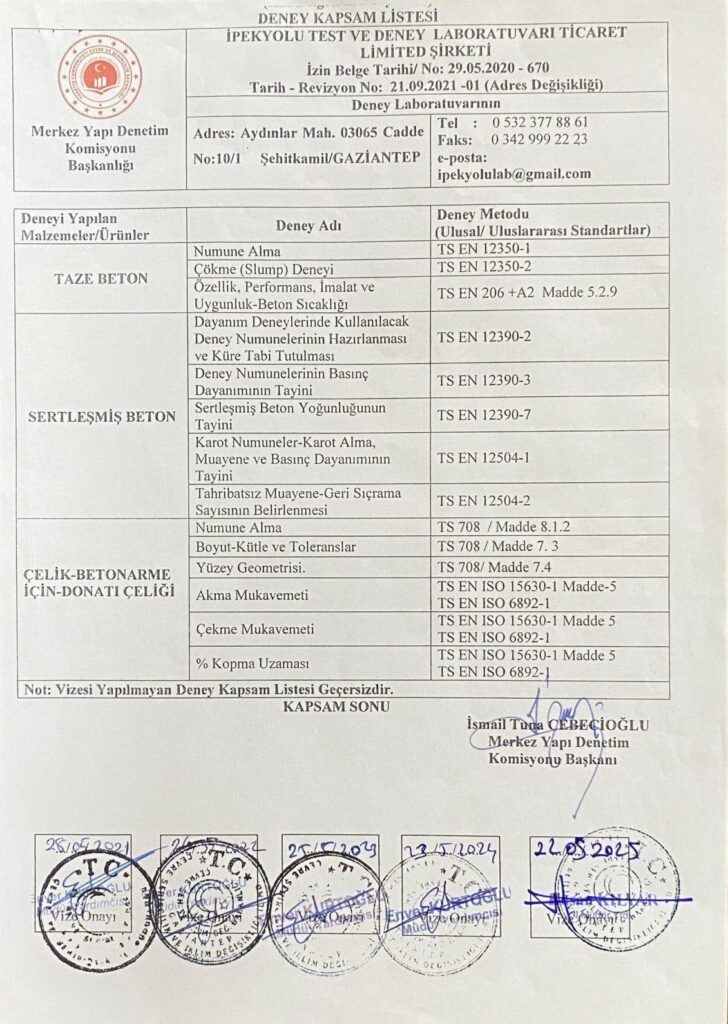 DENEY KAPSAM LİSTESİ
İPEKYOLU TEST VE DENEY LABORATUVARI TİCARET
LİMİTED ŞİRKETİ
İzin Belge Tarihi/ No: 29.05.2020 - 670
Tarih - Revizyon No: 21.09.2021 -01 (Adres Değişikliği)
Deney Laboratuvarının
Merkez Yapı Denetim
Komisyonu
Başkanlığı
Adres: Aydınlar Mah. 03065 Cadde
No:10/1 Şehitkamil/GAZİANTEP
Tel : 0 532 377 88 61
Faks: 0 342 999 22 23
e-posta:
ipekyolulab@gmail.com
Deneyi Yapılan
Malzemeler/Ürünler
Deney Adı
Deney Metodu
(Ulusal/ Uluslararası Standartlar)
TAZE BETON
Numune Alma
TS EN 12350-1
Çökme (Slump) Deneyi
TS EN 12350-2
Özellik, Performans, İmalat ve
Uygunluk-Beton Sıcaklığı
TS EN 206 +A2 Madde 5.2.9
SERTLEŞMİŞ BETON
Dayanım Deneylerinde Kullanılacak
Deney Numunelerinin Hazırlanması
ve Küre Tabi Tutulması
TS EN 12390-2
Deney Numunelerinin Basınç
Dayanımının Tayini
TS EN 12390-3
Sertleşmiş Beton Yoğunluğunun
Tayini
TS EN 12390-7
Karot Numuneler-Karot Alma,
Muayene ve Basınç Dayanımının
Tayini
TS EN 12504-1
Tahribatsız Muayene-Geri Sıçrama
Sayısının Belirlenmesi
TS EN 12504-2
ÇELİK-BETONARME
İÇİN-DONATI ÇELİĞİ
Numune Alma
TS 708 / Madde 8.1.2
Boyut-Kütle ve Toleranslar
TS 708 / Madde 7. 3
Yüzey Geometrisi.
TS 708/ Madde 7.4
Akma Mukavemeti
TS EN ISO 15630-1 Madde-5
TS EN ISO 6892-1
Çekme Mukavemeti
TS EN ISO 15630-1 Madde 5
TS EN ISO 6892-1
% Kopma Uzaması
TS EN ISO 15630-1 Madde 5
TS EN ISO 6892-1
Not: Vizesi Yapılmayan Deney Kapsam Listesi Geçersizdir.
KAPSAM SONU
İsmail Tuna CEBECİOĞLU
Merkez Yapı Denetim
Komisyonu Başkanı
25/5/2023
23/5/2024
22.05.2025
T.C.
T.C.
T.C.
Enver KURTOĞLU
Vize Onayı
Vize Onayı
Vize Onayı
Vize Onayı
Vize Onayı